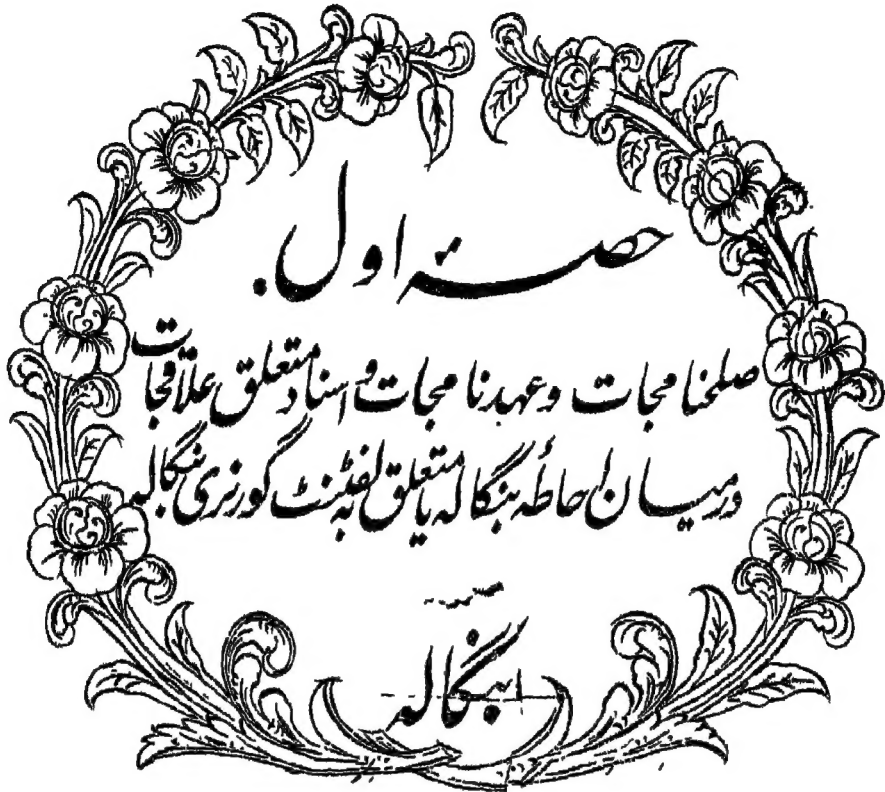 حصۂ اول.
صلحنامجات وعہدنامجات و اسناد متعلق علاقجات
درمیان احاطۂ بنگالہ یا متعلق بہ لفٹننٹ گورنری بنگالہ
بنگالہ